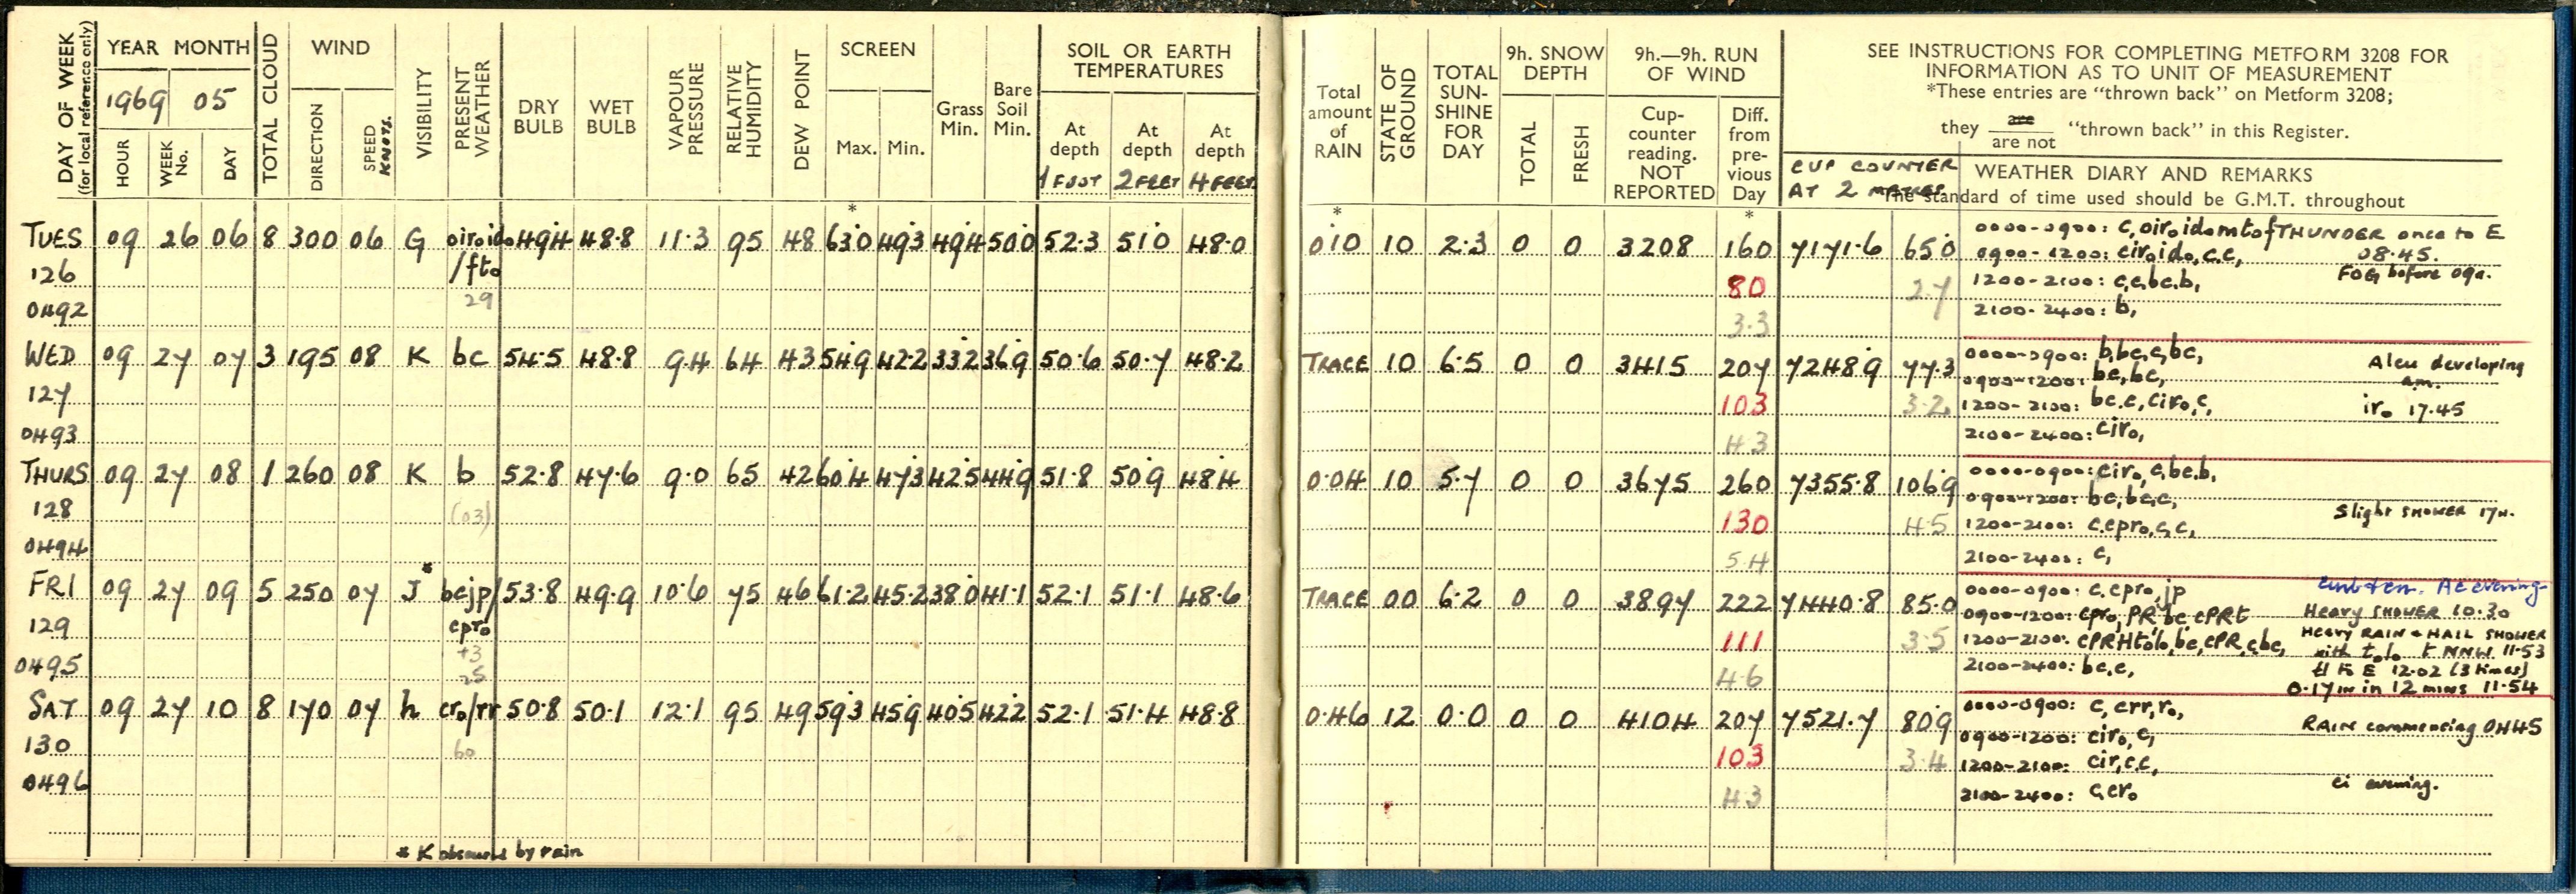 DAY OF WEEK
(for local reference only)
YEAR MONTH
1969 05
HOUR
WEEK No.
DAY
TOTAL CLOUD
WIND
DIRECTION
SPEED KNOTS.
VISIBILITY
PRESENT WEATHER
DRY BULB
WET BULB
VAPOUR PRESSURE
RELATIVE HUMIDITY
DEW POINT
SCREEN
Max.
Min.
Grass Min.
Bare Soil Min.
SOIL OR EARTH TEMPERATURES
At depth 1 FOOT
At depth 2 FEET
At depth 4 FEET
Total amount of RAIN
STATE OF GROUND
TOTAL SUN-SHINE FOR DAY
9h. SNOW DEPTH
TOTAL
FRESH
9h.—9h. RUN OF WIND
Cup-counter reading. NOT REPORTED
Diff. from pre-vious Day
SEE INSTRUCTIONS FOR COMPLETING METFORM 3208 FOR
INFORMATION AS TO UNIT OF MEASUREMENT
*These entries are "thrown back" on Metform 3208;
they are / are not "thrown back" in this Register.
CUP COUNTER AT 2 METRES
WEATHER DIARY AND REMARKS
The standard of time used should be G.M.T. throughout
* * *
TUES 09 26 06 8 300 06 G 49.4 48.8 11.3 95 48 63.0 49.3 49.4 50.0 52.3 51.0 48.0 0.10 10 2.3 0 0 3208 160 7171.6 65.0
126 /fto 80 2.7
0492 29 3.3
0000-0900: THUNDER once to E
0900-1200: ciroido,c,c, 08.45.
1200-2100: c,c,bc,b, FOG before 09h.
2100-2400: b,
WED 09 27 07 3 195 08 K bc 54.5 48.8 9.4 64 43 54.9 42.2 33.2 36.9 50.6 50.7 48.2 TRACE 10 6.5 0 0 3415 207 7248.9 77.3
127 103 3.2
0493 4.3
0000-0900: b,bc,c,bc,
0900-1200: bc,bc, developing a.m.
1200-2100: bc,c,ciro,c, iro 17.45
2100-2400: ciro,
THURS 09 27 08 1 260 08 K b 52.8 47.6 9.0 65 42 60.4 47.3 42.5 44.9 51.8 50.9 48.4 0.04 10 5.7 0 0 3675 260 7355.8 106.9
128 (03) 130 4.5
0494 5.4
0000-0900: ciro,c,bc,b,
0900-1200: bc,bc,c,
1200-2100: c,cpro,c,c, Slight SHOWER 17h.
2100-2400: c,
FRI 09 27 09 5 250 07 J* bcjp/ 53.8 49.9 10.6 75 46 61.2 45.2 38.0 41.1 52.1 51.1 48.6 TRACE 00 6.2 0 0 3897 222 7440.8 85.0
129 cpro 111 3.5
0495 25 4.6
0000-0900: c,cpro,jp evening
0900-1200: cpro,PR bc cPRt HEAVY SHOWER 10.30
1200-2100: HEAVY RAIN & HAIL SHOWER
with tolo t NNW 11.53
2100-2400: bc,c, E 12.02 (3 times)
0.17 in in 12 mins 11.54
SAT 09 27 10 8 170 07 h cro/rr 50.8 50.1 12.1 95 49 59.3 45.9 40.5 42.2 52.1 51.4 48.8 0.46 12 0.0 0 0 4104 207 7521.7 80.9
130 60 103 3.4
0496 4.3
0000-0900: c,crr,ro,
0900-1200: ciro,c, RAIN commencing 0445
1200-2100: cir,c,c,
2100-2400: c,cro ci evening.
* K obscured by rain